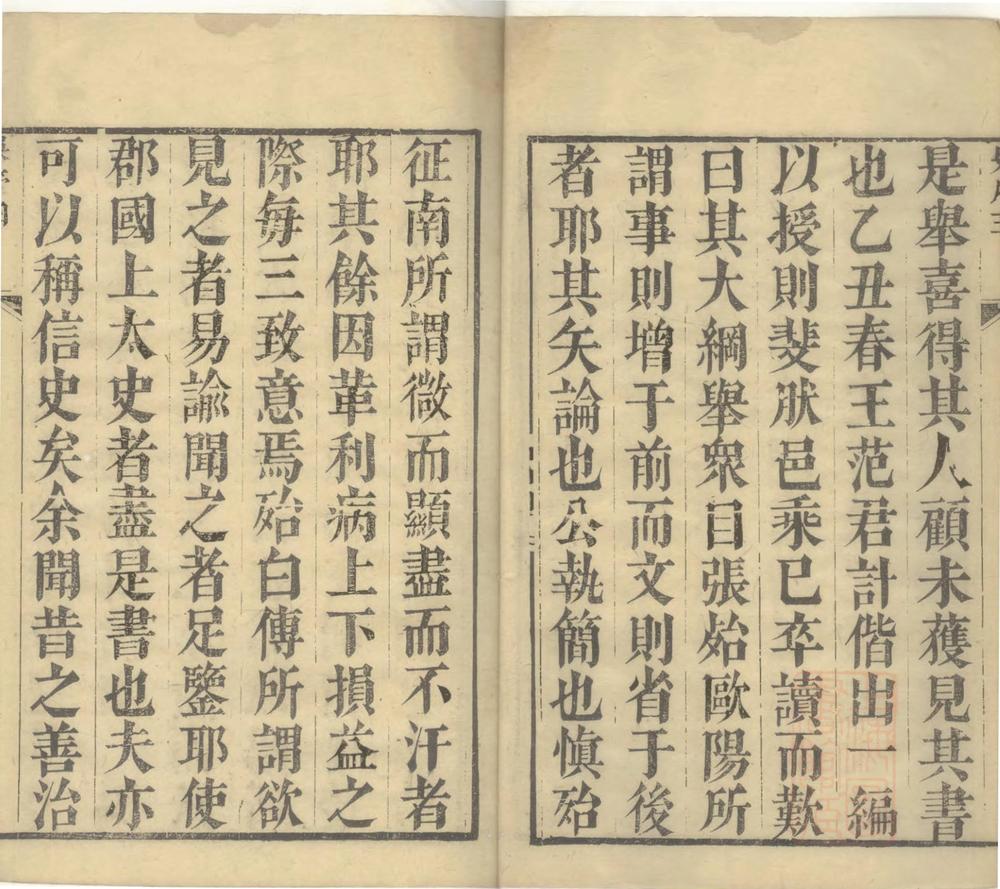 是舉喜得其人顧未蒦見其書
也乙丑春王范君計偕出一編
以授則斐肰邑乘已卒讀而歎
曰其大綱舉衆目張殆歐陽所
謂事則增于前而文則省于後
者耶其矢論也公執簡也慎殆
征南所謂微而顯盡而不汙者
耶其餘因革利病上下損益之
際每三致意焉殆白傅所謂欲
見之者易諭聞之者足鑒耶使
郡國上太史者盡是書也夫亦
可以稱信史矣余聞昔之善治